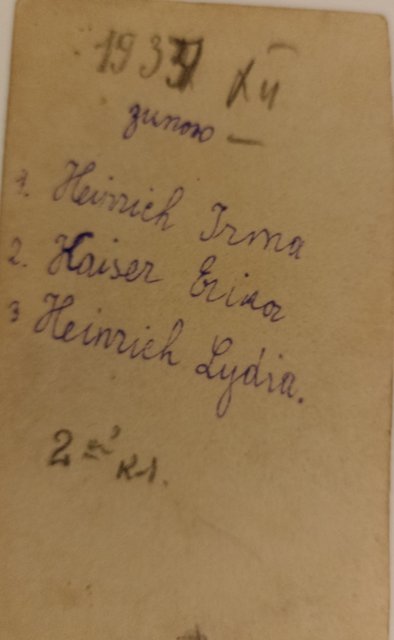 XII
зимою —
1. Heinrich Irma
2. Kaiser Erika
3 Heinrich Lydia.
2-й кл.